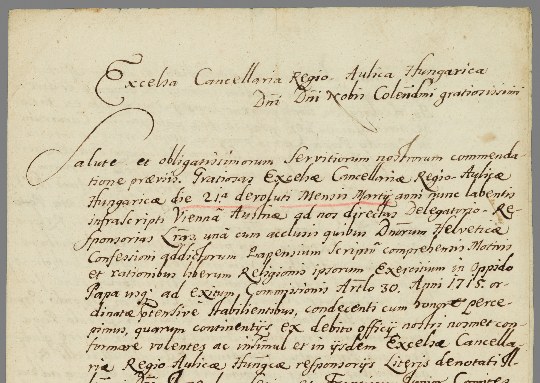 Excelsa Cancellaria Regio-Aulica Hungarica
Dni Dni Nobis Colendmi gratiosissimi
Salute et obligatissimorum servitiorum nostrorum commenda-
tione præviis. Gratiosas Excelsæ Cancellariæ Regio-Aulicæ
Hungaricæ die 21.a devoluti Mensis Martij anni nunc labentis
infrascripti Viennâ Austriæ ad nos directas Delegatorio-Re-
sponsorias Lras, unà cum acclusis quibus Dnorum Helveticæ
Confessioni addictorum Papensium Scriptū comprehensis Motivis
et rationibus liberum Religionis ipsorum Exercitium in Oppido
Papa usq; ad exitum Commissionis Artlo 30. Anni 1715. or-
dinatæ stabilientibus, condecenti cum honore perce-
pimus, quarum continentijs ex debito officij nostri nosmet con-
formare volentes, ac insimul et in ijsdem Excelsæ Cancella-
riæ Regio Aulicæ Hungcæ responsorijs Literis denotati Il-